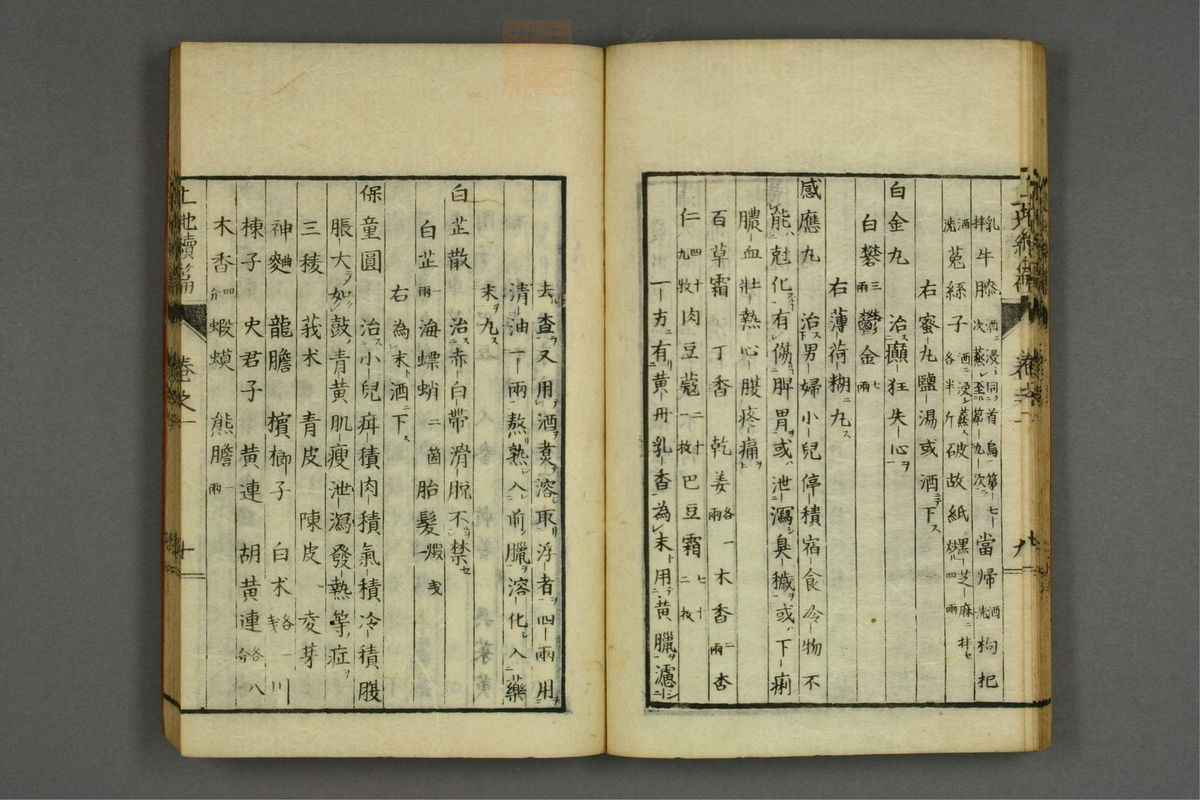 牛膝 當歸 枸杞
菟絲子 各半斤 破故紙
右蜜丸鹽湯或酒下
白金丸 治癲狂失心
白礬三兩 鬱金七兩
右薄荷糊丸
感應丸 治男婦小兒停積宿食冷物不
能尅化有傷脾胃或泄瀉臭穢或下痢
膿血壯熱心腹疼痛
百草霜 丁香 乾姜各一兩 木香二兩 杏
仁四十九枚 肉豆蔻二十枚 巴豆霜七十二枚
一方有黃丹乳香為末用黃臘濾
去查又用酒煑溶取浮者四兩用
清油一兩熬熟入前臘溶化入藥
末丸
白芷散 治赤白帶滑脫不禁
白芷一兩 海螵蛸二箇 胎髮一煆
右為末酒下
保童圓 治小兒疳積肉積氣積冷積腹
脹大如鼓青黃肌瘦泄瀉發熱等症
三稜 莪朮 青皮 陳皮 麥芽
神麯 龍膽 檳榔子 白朮各 川
楝子 史君子 黃連 胡黃連各八分
木香四分 蝦蟆 熊膽一兩